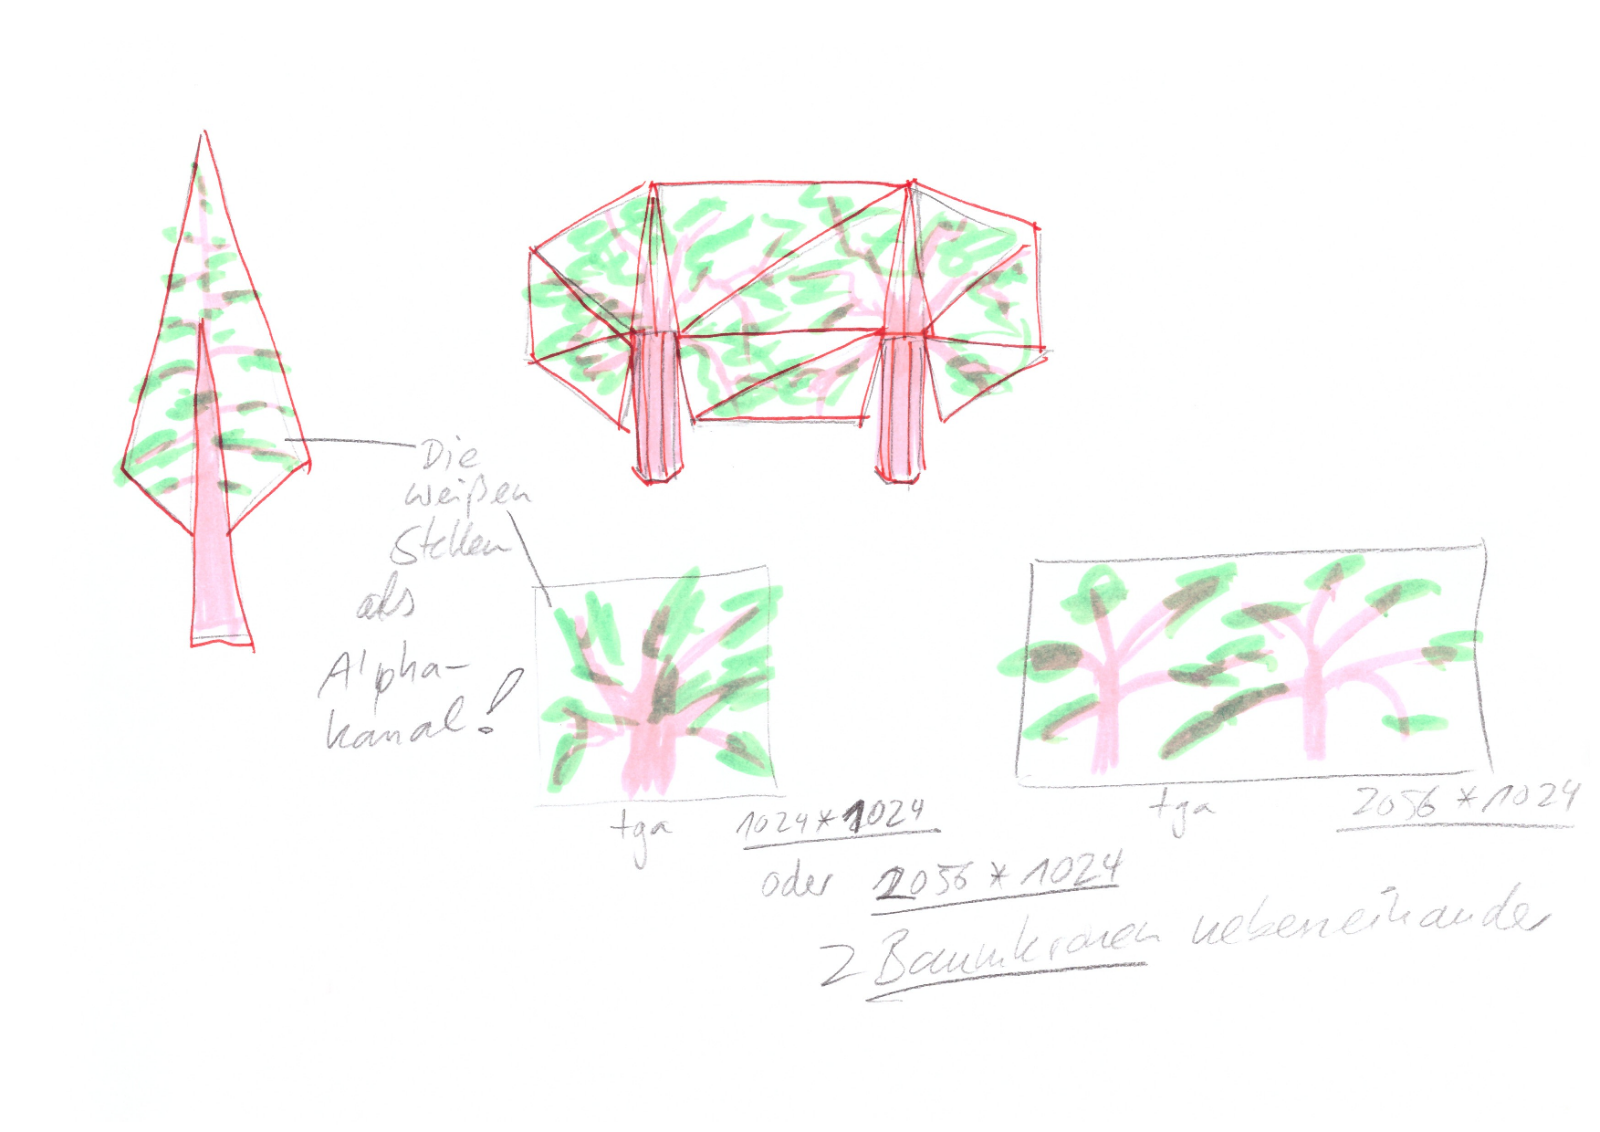 Die
weißen
Stellen
als
Alpha-
kanal!
tga 1024*1024
oder 2056*1024
2 Baumkronen nebeneinander
tga 2056*1024